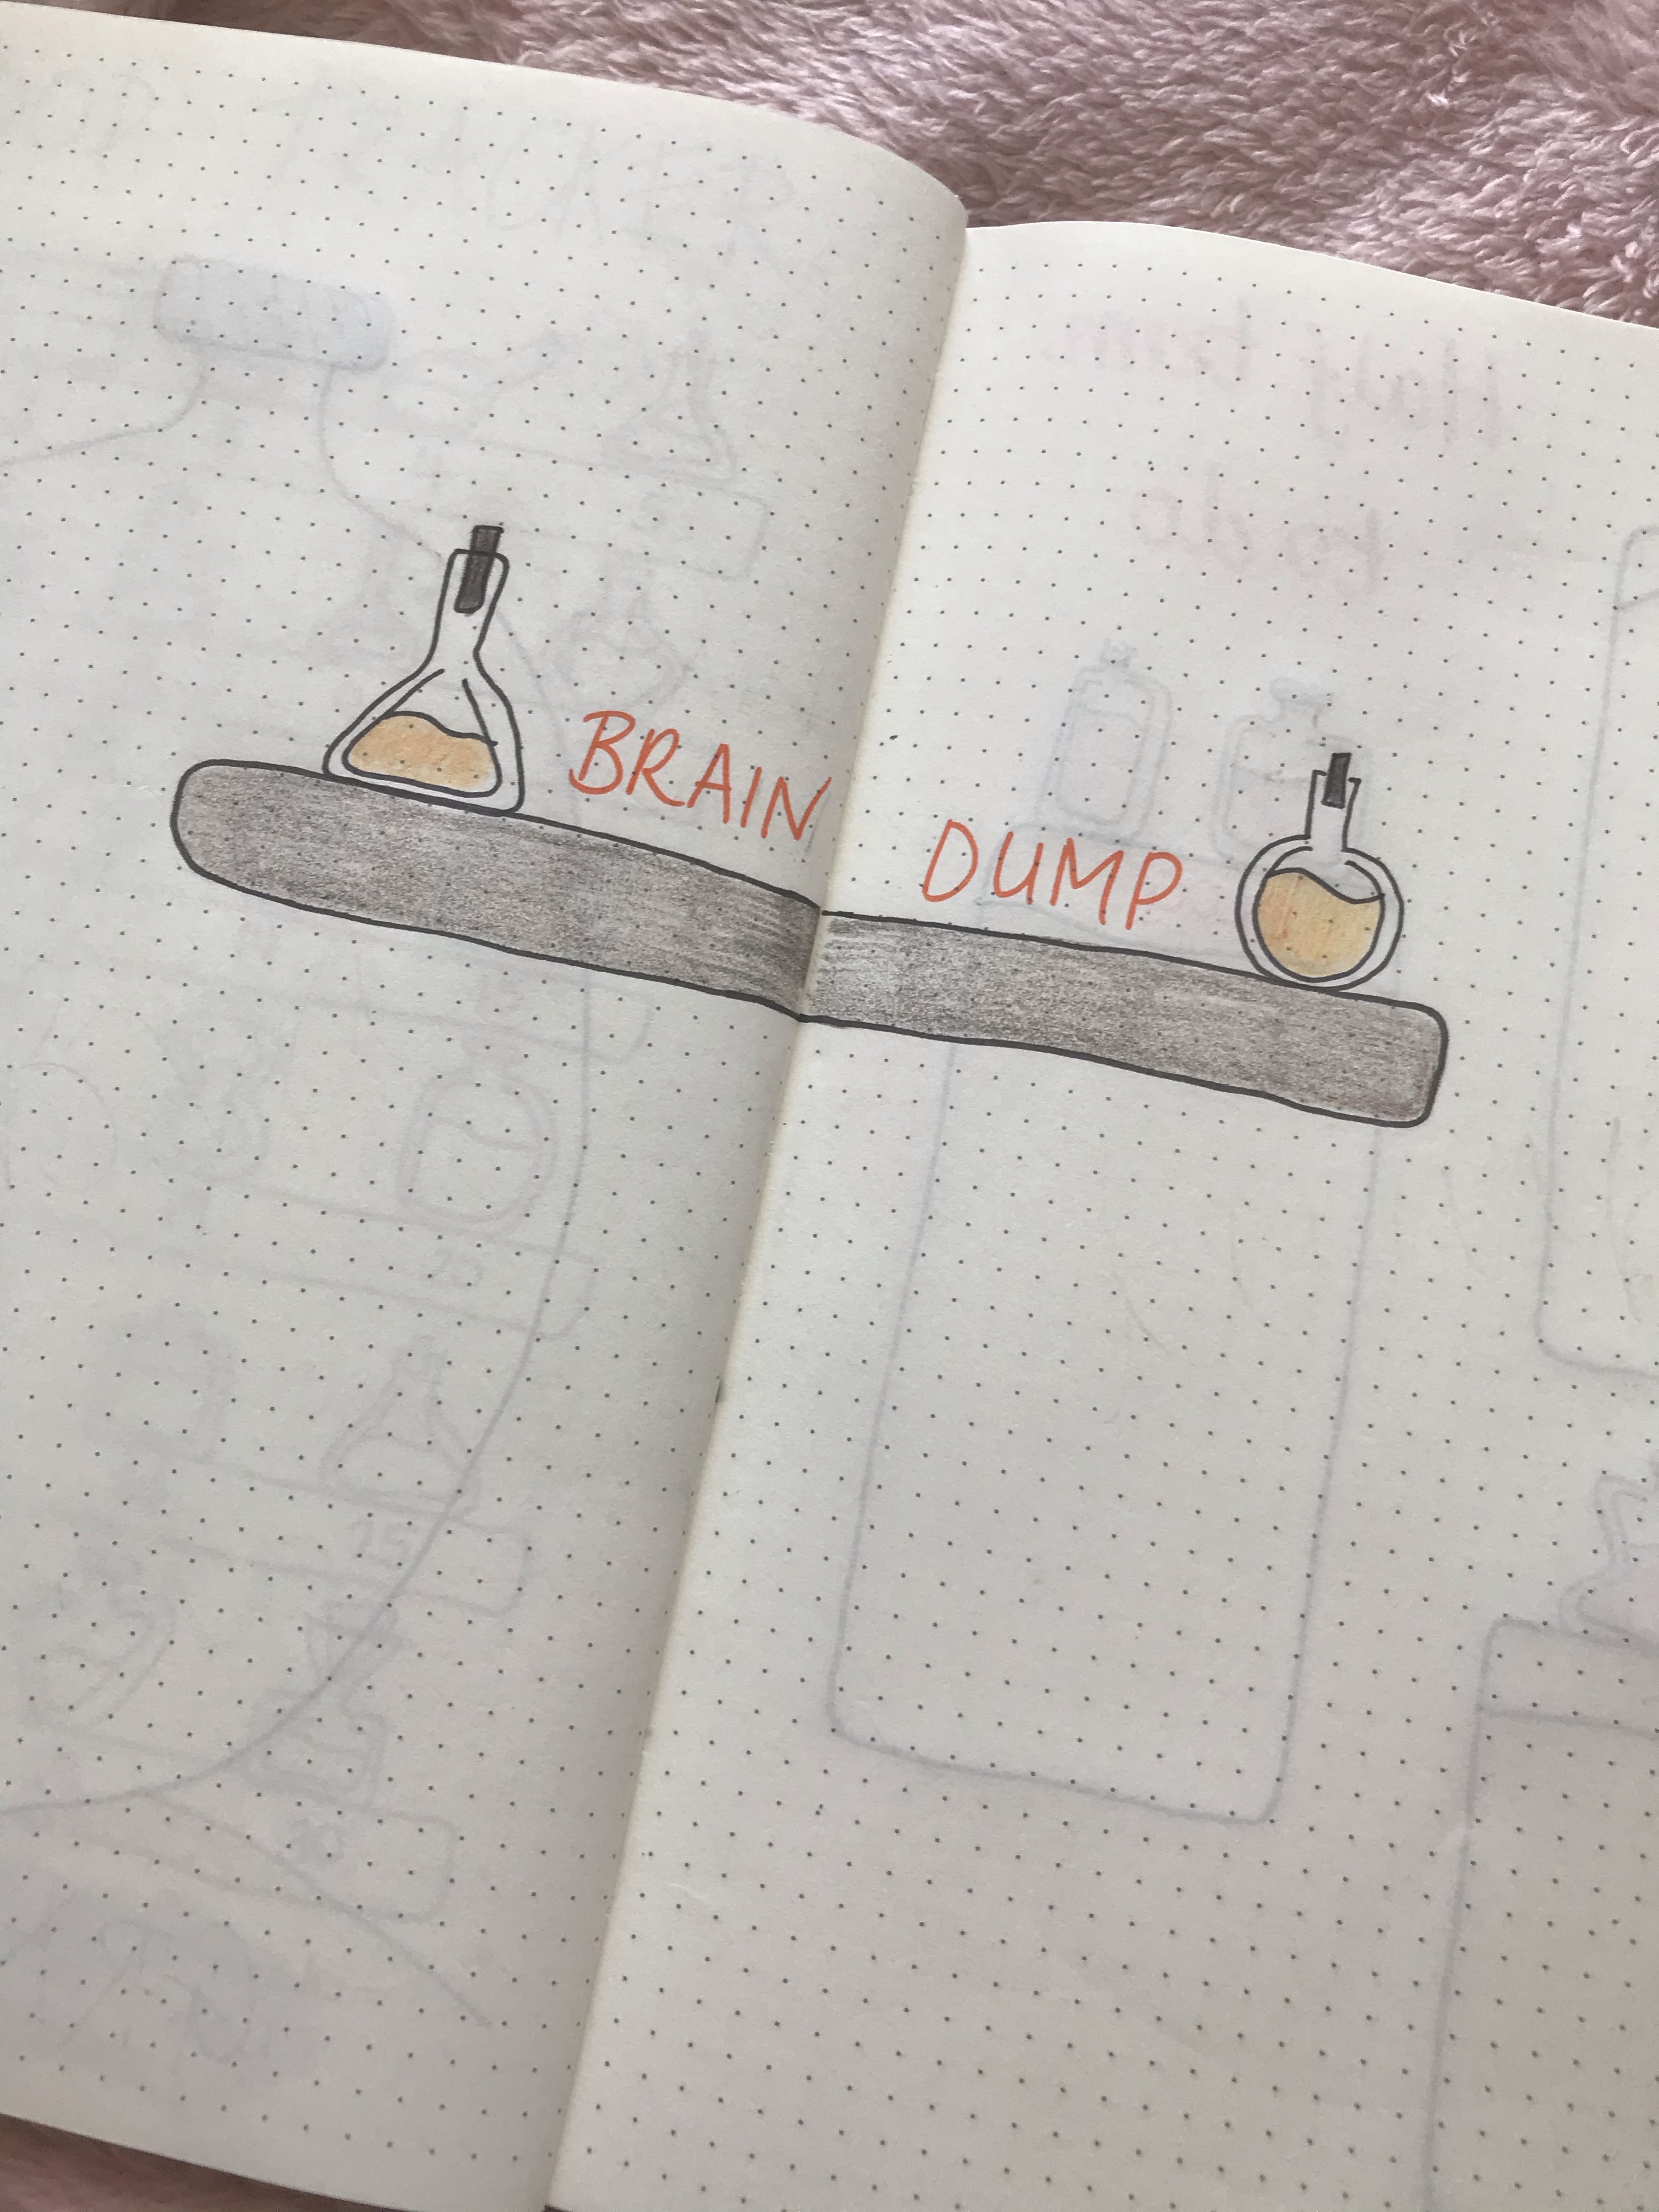 BRAIN DUMP